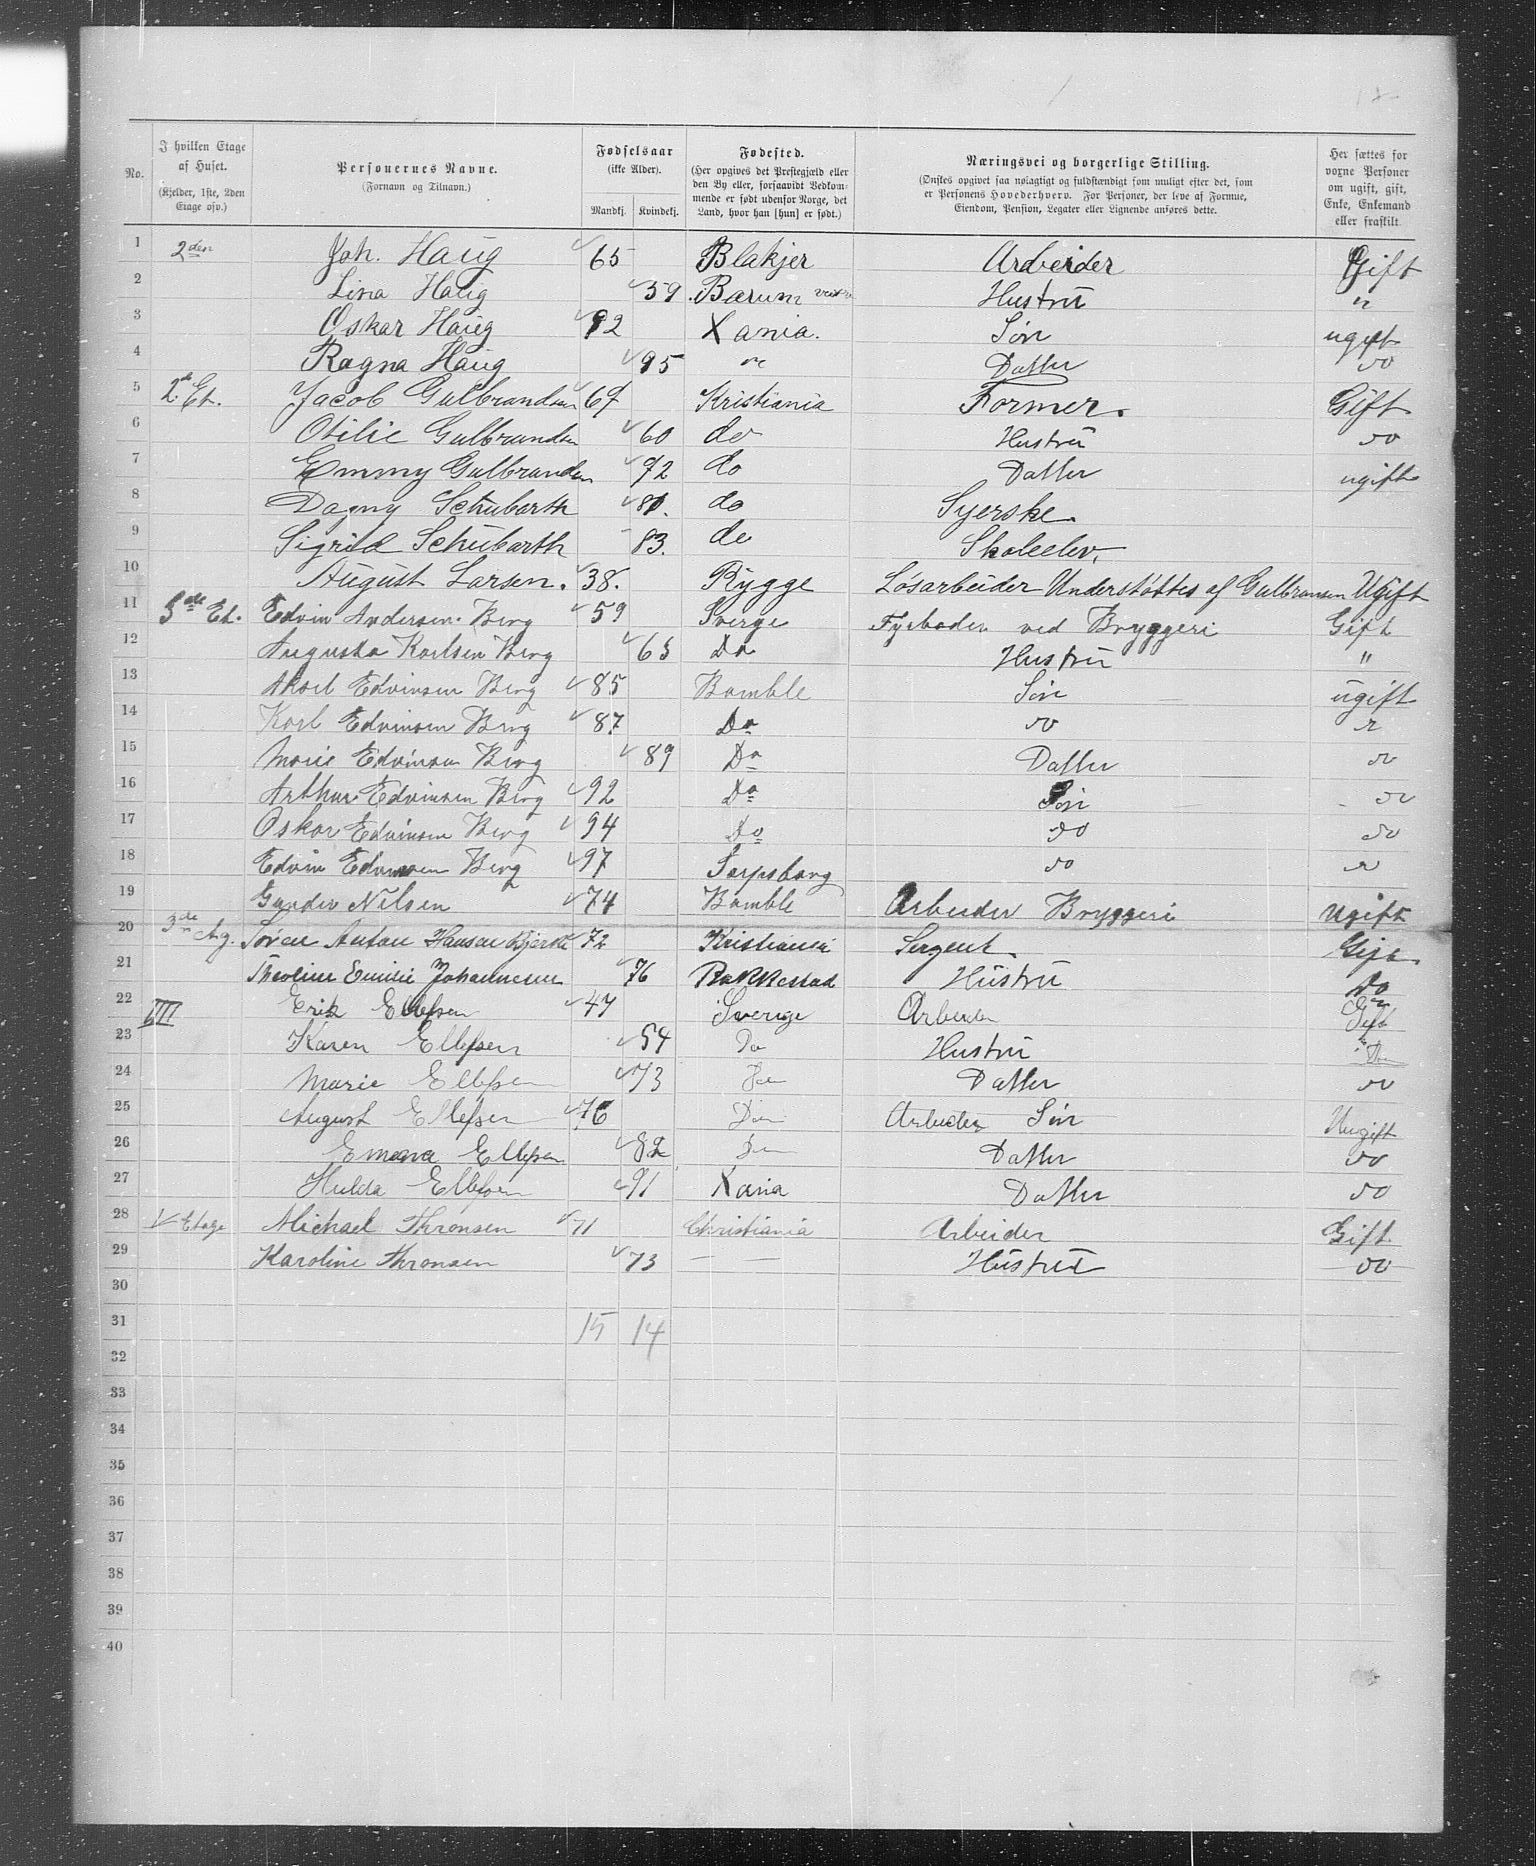 No.
I hvilken Etage af Huset. (Kjelder, 1ste, 2den Etage osv.)
Personernes Navne. (Fornavn og Tilnavn.)
Fødselsaar (ikke Alder). Mandkj. Kvindekj.
Fødested. (Her opgives det Prestegjæld eller den By eller, forsaavidt Vedkommende er født udenfor Norge, det Land, hvor han [hun] er født.)
Næringsvei og borgerlige Stilling. (Ønskes opgivet saa nøiagtigt og fuldstændigt som muligt efter det, som er Personens Hovederhverv. For Personer, der leve af Formue, Eiendom, Pension, Legater eller Lignende anføres dette.)
Her sættes for voxne Personer om ugift, gift, Enke, Enkemand eller fraskilt.
1 2den Joh. Haug 65 Blakjer Arbeider Gift
2 Lina Haug 59 Bærum Hustru "
3 Oskar Haug 92 Xania. Søn ugift
4 Ragna Haug 95 do Datter do
5 2d Et. Jacob Gulbrandsen 67 Kristiania Former. Gift
6 Otilie Gulbrandsen 60 do Hustru do
7 Emmy Gulbrandsen 92 do Datter ugift
8 Dagny Schubarth 81. do Syerske.
9 Sigrid Schubarth 83. do Skoleelev,
10 August Larsen. 38. Rygge Løsarbeider Understøttes af Gulbransen Ugift
11 Et. Edvin Andersen Berg 59 Sverge Fyrbøder ved Bryggeri Gift
12 Augusta Karlsen Berg 65 Do Hustru "
13 Aksel Edvinsen Berg 85 Bamble Søn ugift
14 Karl Edvinsen Berg 87 Do do
15 Marie Edvinsen Berg 89 Do Datter do
16 Arthur Edvinsen Berg 92 Do Søn do
17 Oskar Edvinsen Berg 94 Do do do
18 Edvin Edvinsen Berg 97 Sarpsborg do do
19 Gunder Nilsen 74 Bamble Arbeider Bryggeri Ugift
20 3de Søren Anton Hansen 72 Kristiania Sergent Gift
21 Theoline Emilie Johannesen 76 Rakkestad Hustru Do
22 III Erik Ellefsen 47 Sverige Arbeider Gift
23 Karen Ellefsen 54 Do Hustru Do
24 Marie Ellefsen 73 Do Datter do
25 August Ellefsen 76 Do Arbeider Søn Uugift
26 Emma Ellefsen 82 Do Datter do
27 Hulda Ellefsen 91 Xania Datter do
28 V Etage Michael Thronsen 71 Christiania Arbeider Gift
29 Karoline Thronsen 73 — — Hustru do
30
31 15 14
32
33
34
35
36
37
38
39
40